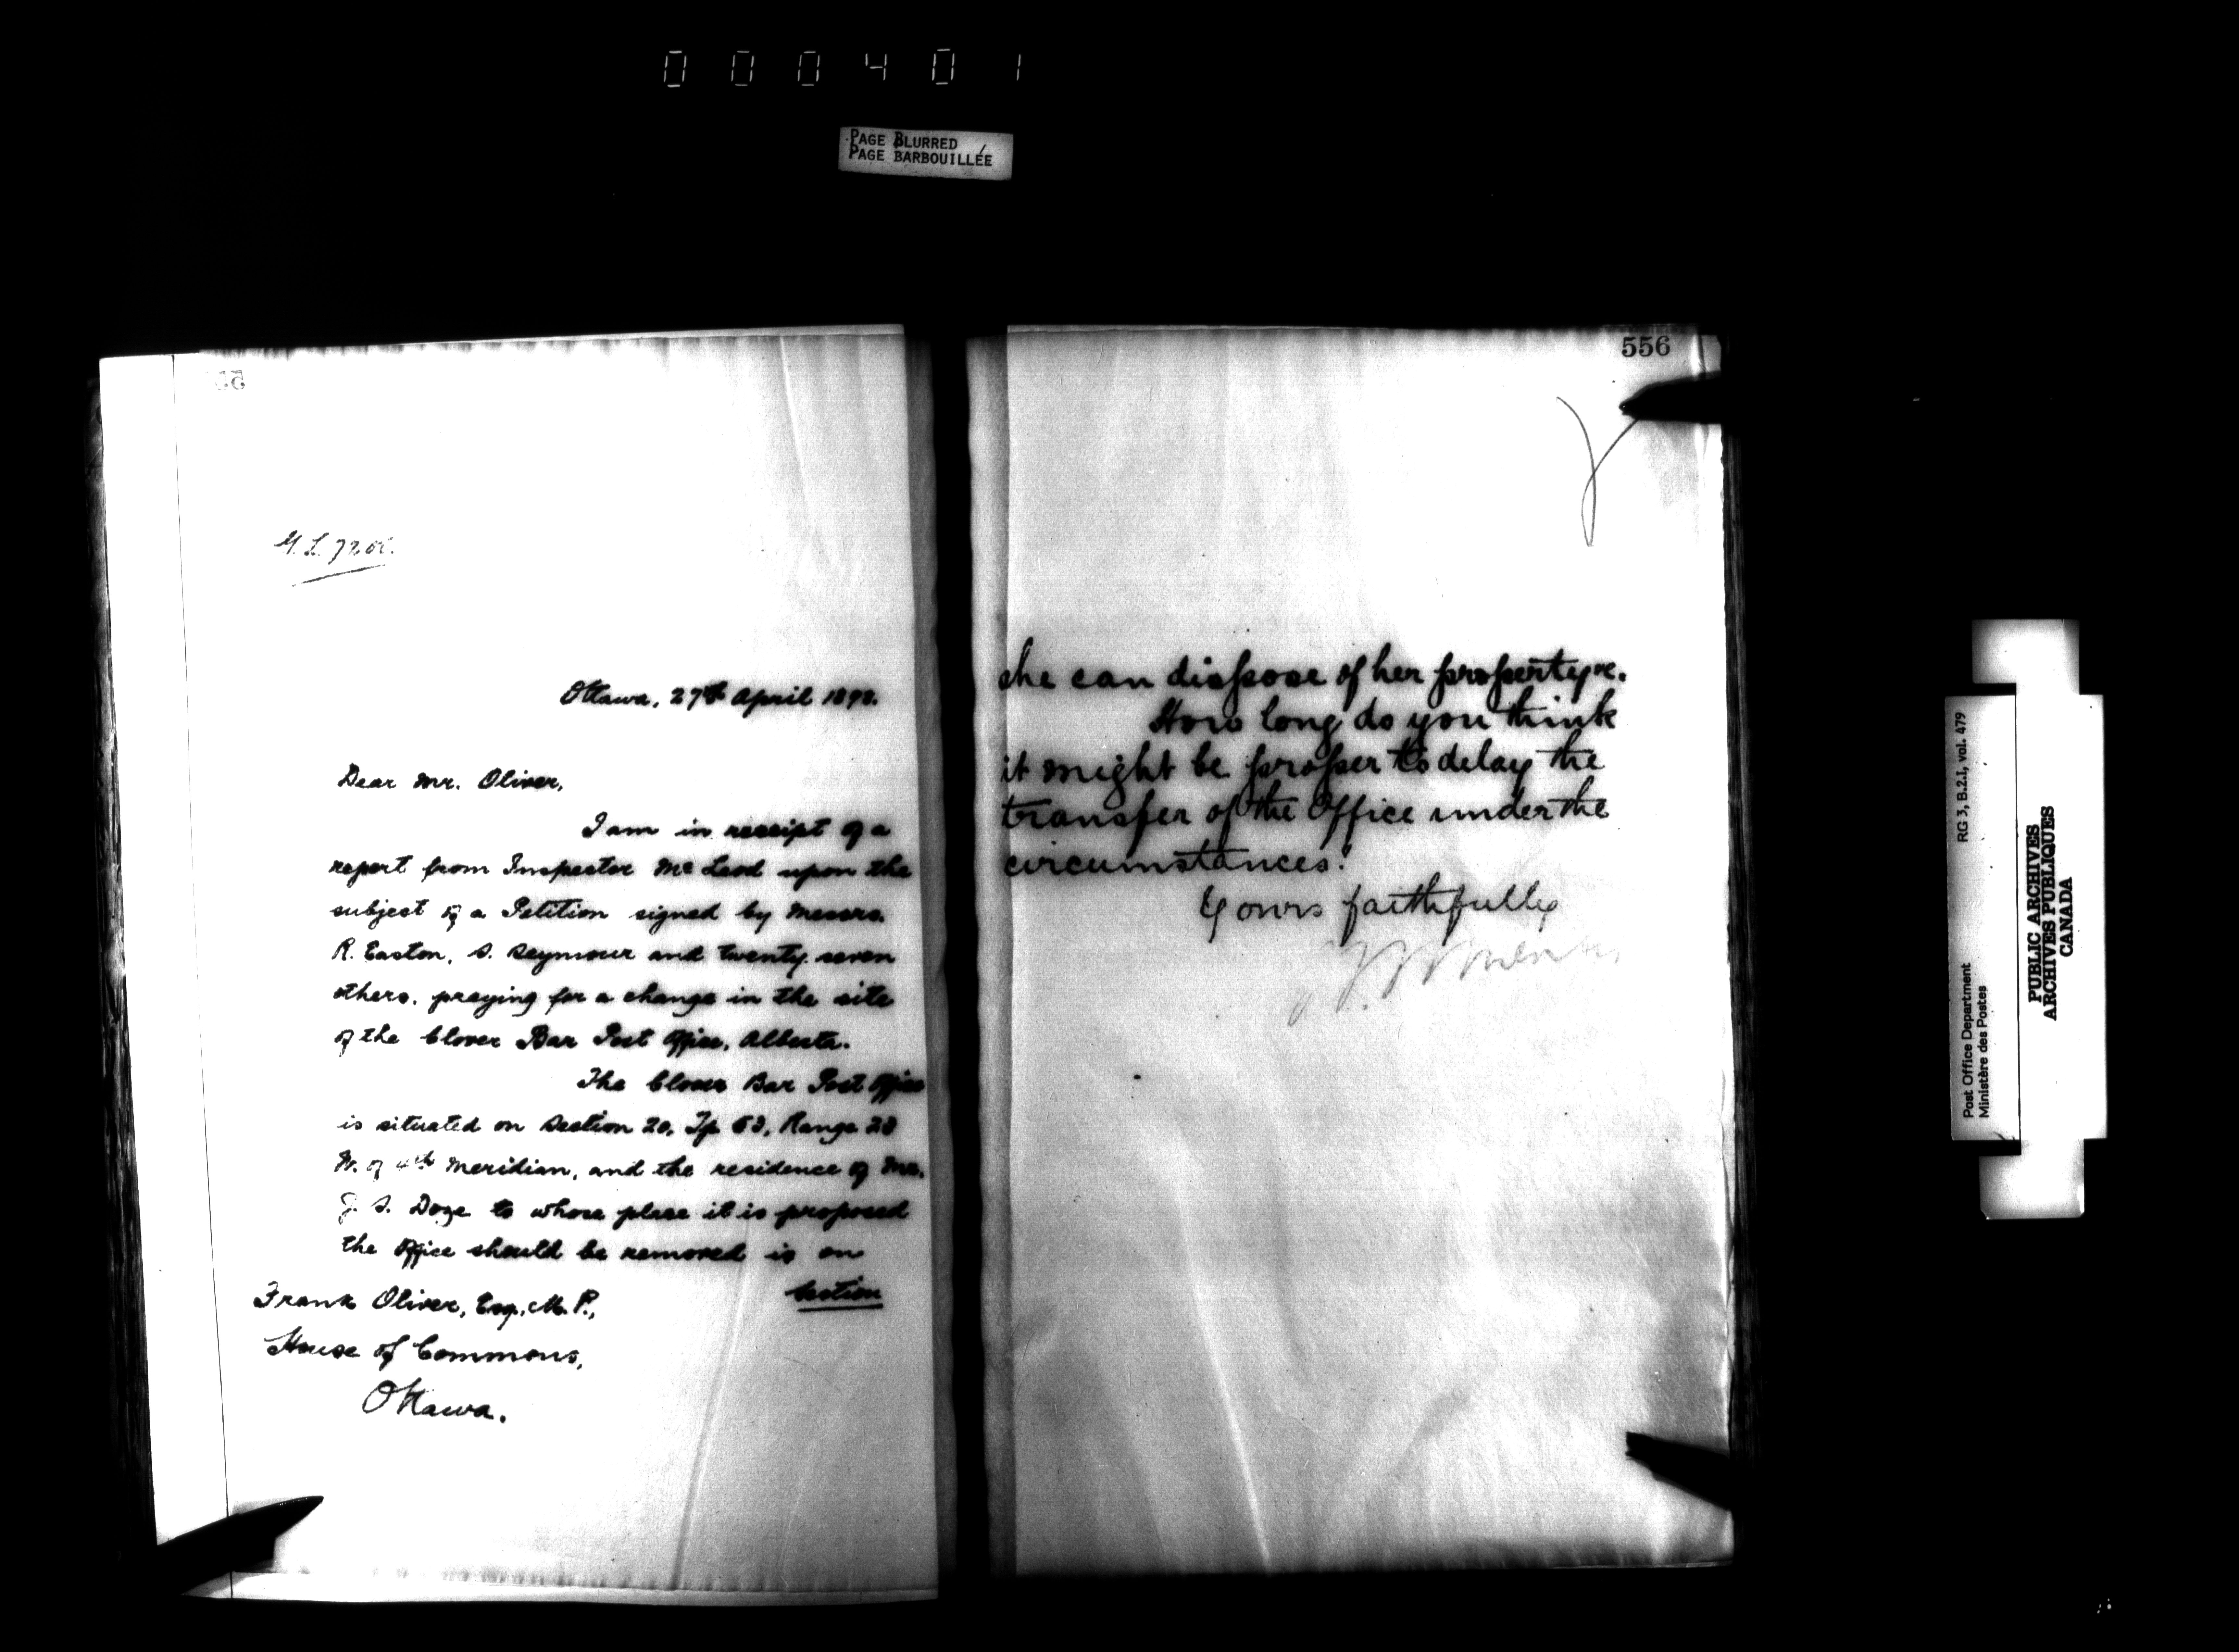 000401
PAGE BLURRED
PAGE BARBOUILLÉE
Ottawa, 27th April 1898.
Dear Mr. Oliver,
I am in receipt of a
report from Inspector McLeod upon the
subject of a Petition signed by Messrs.
R. Easton, S. Seymour and twenty seven
others, praying for a change in the site
of the Clover Bar Post Office, Alberta.
The Clover Bar Post Office
is situated on Section 20, Tp 53, Range 23
W. of 4th Meridian, and the residence of Mr.
J. S. Doze to whose place it is proposed
the Office should be removed is on
Section
Frank Oliver, Esq., M.P.,
House of Commons,
Ottawa.
556
she can dispose of her property
How long do you think
it might be proper to delay the
transfer of the Office under the
circumstances?
Yours faithfully
Post Office Department
Ministère des Postes
RG 3, B.2.I, vol. 479
PUBLIC ARCHIVES
ARCHIVES PUBLIQUES
CANADA